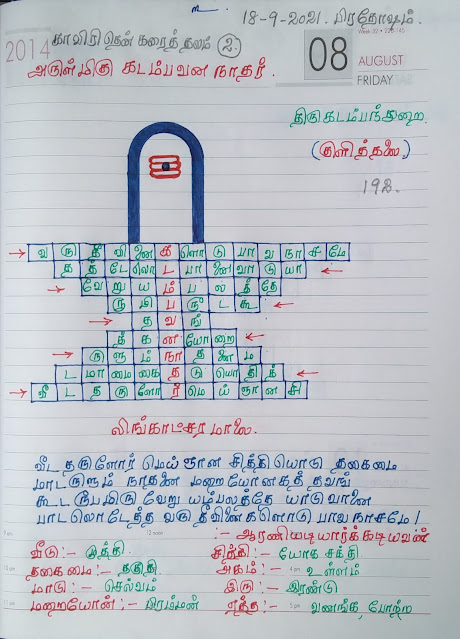 18-9-2021. பிரதோஷம்.
2014 காவிரிதென் கரைத்தலம் 2.
Week 32
08 AUGUST
FRIDAY
அருள்மிகு கடம்பவன நாதர்.
திருகடம்பந்துறை.
(குளித்தலை)
198.
வ ரு தீ வி னை க ளொ டு பா வ நா ச மே
த த் டே லொ ட பா னை வா டு யா
வே று ய ம் ப ல த் தே
ரு மி ப ரூ ட கூ
த வ ங்
த் க ன யோ றை
ரு ளு ம் நா த னை ம
ட மா மை கை த டு யொ தி த்
வீ ட த ரு ளோ ர் மெ ய் ஞா ன சி
லிங்காட்சர மாலை.
வீட தருளோர் மெய் ஞான சித்தியொடு தகைமை
மாடருளும் நாதனை மறையோனகத் தவங்
கூட ரூபமிரு வேறு யம்பலத்தே யாடுவானை
பாடலொடேத்த வரு தீவினைகளொடு பாவநாசமே!
:- ஆரணியடியார்க்கடியவன்
வீடு:- முத்தி
சித்தி:- யோக சத்தி
தகைமை:- தகுதி
அகம்:- உள்ளம்
மாடு:- செல்வம்
இரு:- இரண்டு
மறையோன்:- பிரம்மன்
ஏத்த:- வணங்க, போற்ற